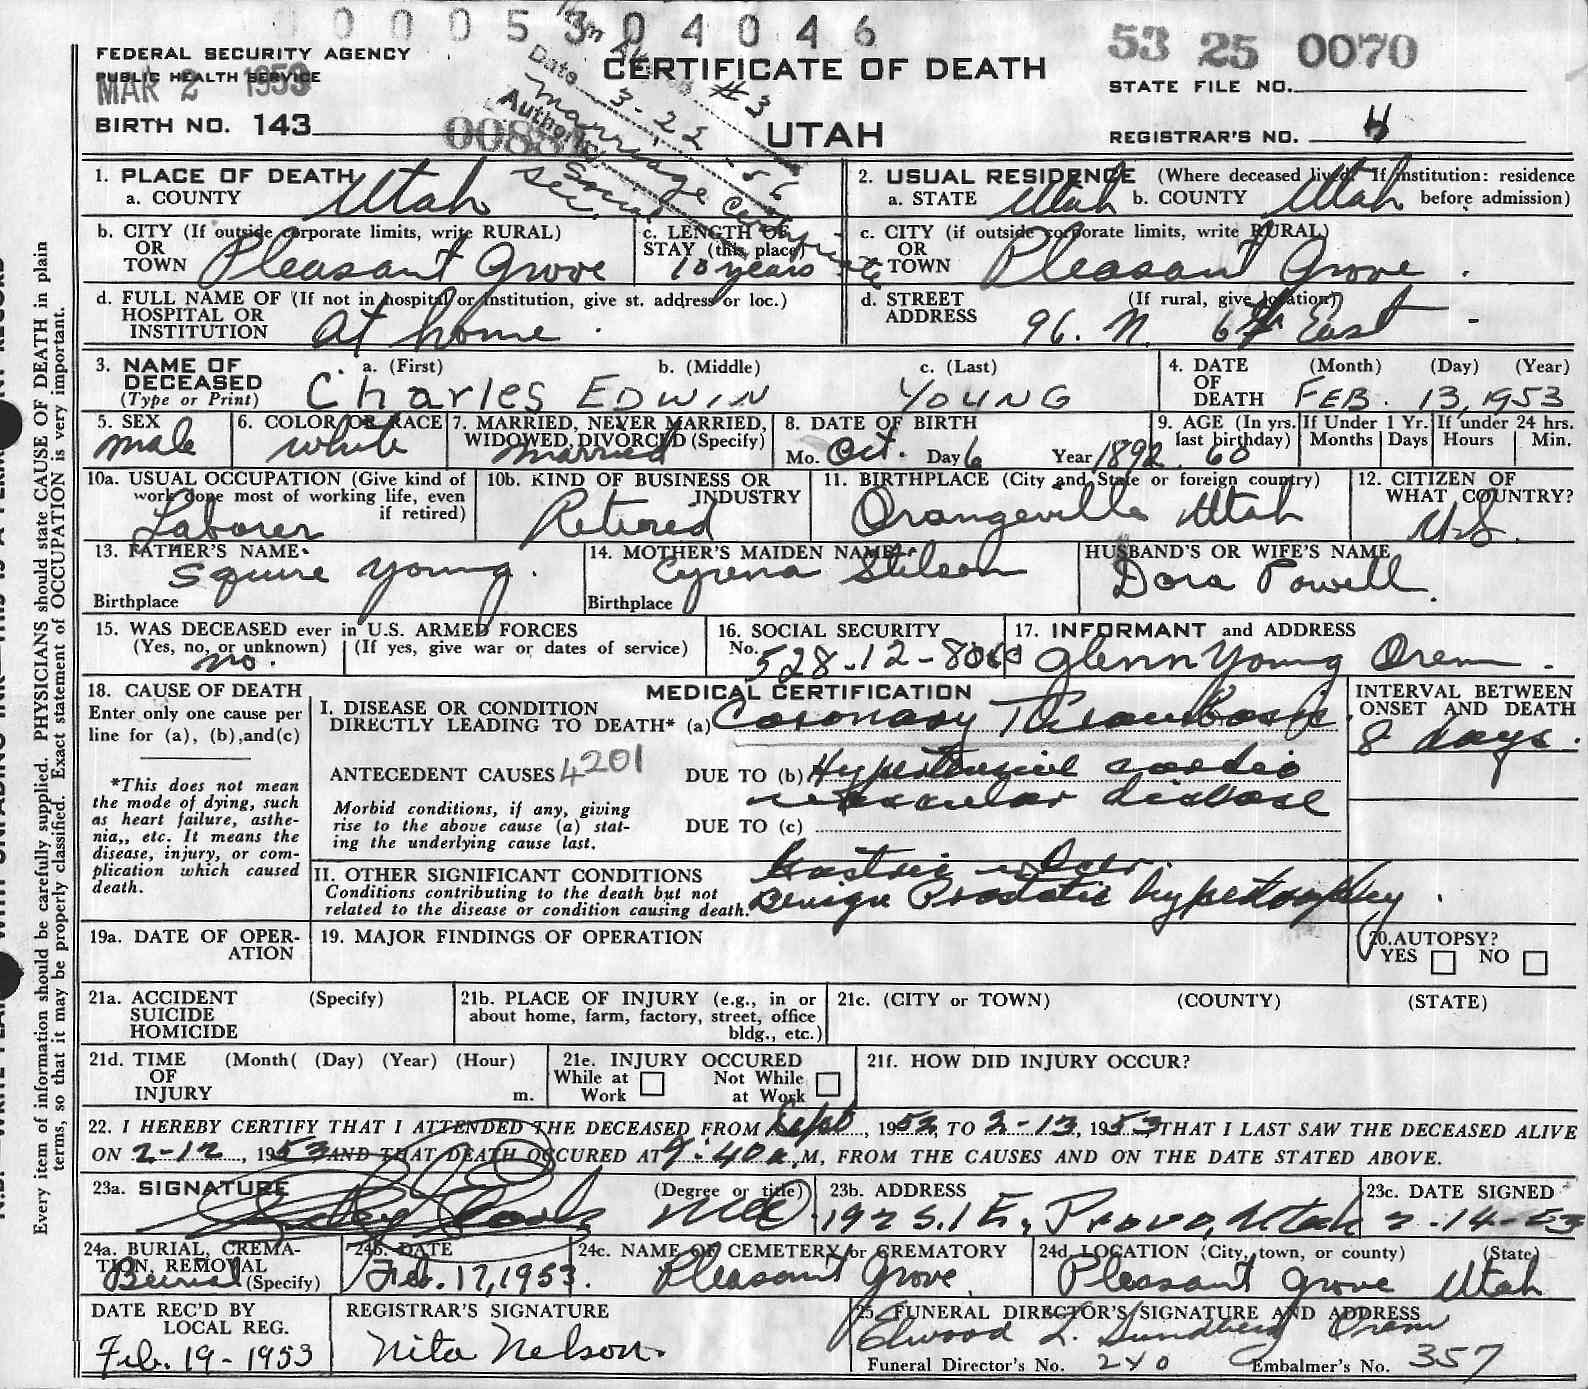 0 0 0 5 3 0 4 0 4 6
53 25 0070
FEDERAL SECURITY AGENCY
PUBLIC HEALTH SERVICE
MAR 2 1953
CERTIFICATE OF DEATH
UTAH
STATE FILE NO.
BIRTH NO. 143
REGISTRAR'S NO. 4
Date 3-22-56
#3
Marriage Certificate
Authority
Social
Sec.
1. PLACE OF DEATH
a. COUNTY Utah
2. USUAL RESIDENCE (Where deceased lived. If institution: residence before admission)
a. STATE Utah b. COUNTY Utah
b. CITY (If outside corporate limits, write RURAL)
OR
TOWN Pleasant Grove
c. LENGTH OF
STAY (this place)
10 years
c. CITY (if outside corporate limits, write RURAL)
OR
TOWN Pleasant Grove.
d. FULL NAME OF (If not in hospital or institution, give st. address or loc.)
HOSPITAL OR
INSTITUTION At home.
d. STREET (If rural, give location)
ADDRESS 96. N. 6th East -
3. NAME OF DECEASED
(Type or Print)
a. (First) b. (Middle) c. (Last)
Charles EDWIN YOUNG
4. DATE OF DEATH (Month) (Day) (Year)
FEB. 13, 1953
5. SEX
male
6. COLOR OR RACE
white
7. MARRIED, NEVER MARRIED,
WIDOWED, DIVORCED (Specify)
married
8. DATE OF BIRTH
Mo. Oct. Day 6 Year 1892
9. AGE (In yrs. last birthday) 60
If Under 1 Yr. Months Days
If under 24 hrs. Hours Min.
10a. USUAL OCCUPATION (Give kind of
work done most of working life, even
if retired)
Laborer
10b. KIND OF BUSINESS OR
INDUSTRY
Retired
11. BIRTHPLACE (City and State or foreign country)
Orangeville Utah
12. CITIZEN OF
WHAT COUNTRY?
U.S.
13. FATHER'S NAME
Squire Young.
Birthplace
14. MOTHER'S MAIDEN NAME
Cyrena Stilson
Birthplace
HUSBAND'S OR WIFE'S NAME
Dora Powell.
15. WAS DECEASED ever in U.S. ARMED FORCES
(Yes, no, or unknown) (If yes, give war or dates of service)
no.
16. SOCIAL SECURITY
No. 528-12-8060
17. INFORMANT and ADDRESS
Glenn Young Orem.
18. CAUSE OF DEATH
Enter only one cause per
line for (a), (b), and (c)
*This does not mean
the mode of dying, such
as heart failure, asthe-
nia,, etc. It means the
disease, injury, or com-
plication which caused
death.
MEDICAL CERTIFICATION
I. DISEASE OR CONDITION
DIRECTLY LEADING TO DEATH* (a) Coronary Thrombosis
INTERVAL BETWEEN
ONSET AND DEATH
8 days.
ANTECEDENT CAUSES 4201
Morbid conditions, if any, giving
rise to the above cause (a) stat-
ing the underlying cause last.
DUE TO (b) Hypertensive cardio
vascular disease
DUE TO (c)
II. OTHER SIGNIFICANT CONDITIONS
Conditions contributing to the death but not
related to the disease or condition causing death.
Gastric ulcer.
Benign Prostatic hypertrophy.
19a. DATE OF OPER-
ATION
19. MAJOR FINDINGS OF OPERATION
20. AUTOPSY?
YES NO
21a. ACCIDENT
SUICIDE
HOMICIDE
(Specify)
21b. PLACE OF INJURY (e.g., in or
about home, farm, factory, street, office
bldg., etc.)
21c. (CITY or TOWN) (COUNTY) (STATE)
21d. TIME (Month( (Day) (Year) (Hour)
OF
INJURY m.
21e. INJURY OCCURED
While at Work Not While at Work
21f. HOW DID INJURY OCCUR?
22. I HEREBY CERTIFY THAT I ATTENDED THE DECEASED FROM Sept, 1952, TO 2-13, 1953 THAT I LAST SAW THE DECEASED ALIVE
ON 2-12, 1953 AND THAT DEATH OCCURED AT 9:40 a.M, FROM THE CAUSES AND ON THE DATE STATED ABOVE.
23a. SIGNATURE (Degree or title)
MD
23b. ADDRESS
192 S. 1 E, Provo, Utah
23c. DATE SIGNED
2-14-53
24a. BURIAL, CREMA-
TION, REMOVAL
(Specify)
Burial
24b. DATE
Feb. 17, 1953.
24c. NAME OF CEMETERY or CREMATORY
Pleasant Grove
24d. LOCATION (City, town, or county) (State)
Pleasant Grove Utah
DATE REC'D BY
LOCAL REG.
Feb. 19-1953
REGISTRAR'S SIGNATURE
Nita Nelson.
25. FUNERAL DIRECTOR'S SIGNATURE AND ADDRESS
Elwood L. Sundberg Orem
Funeral Director's No. 240 Embalmer's No. 357
Every item of information should be carefully supplied. PHYSICIANS should state CAUSE OF DEATH in plain
terms, so that it may be properly classified. Exact statement of OCCUPATION is very important.